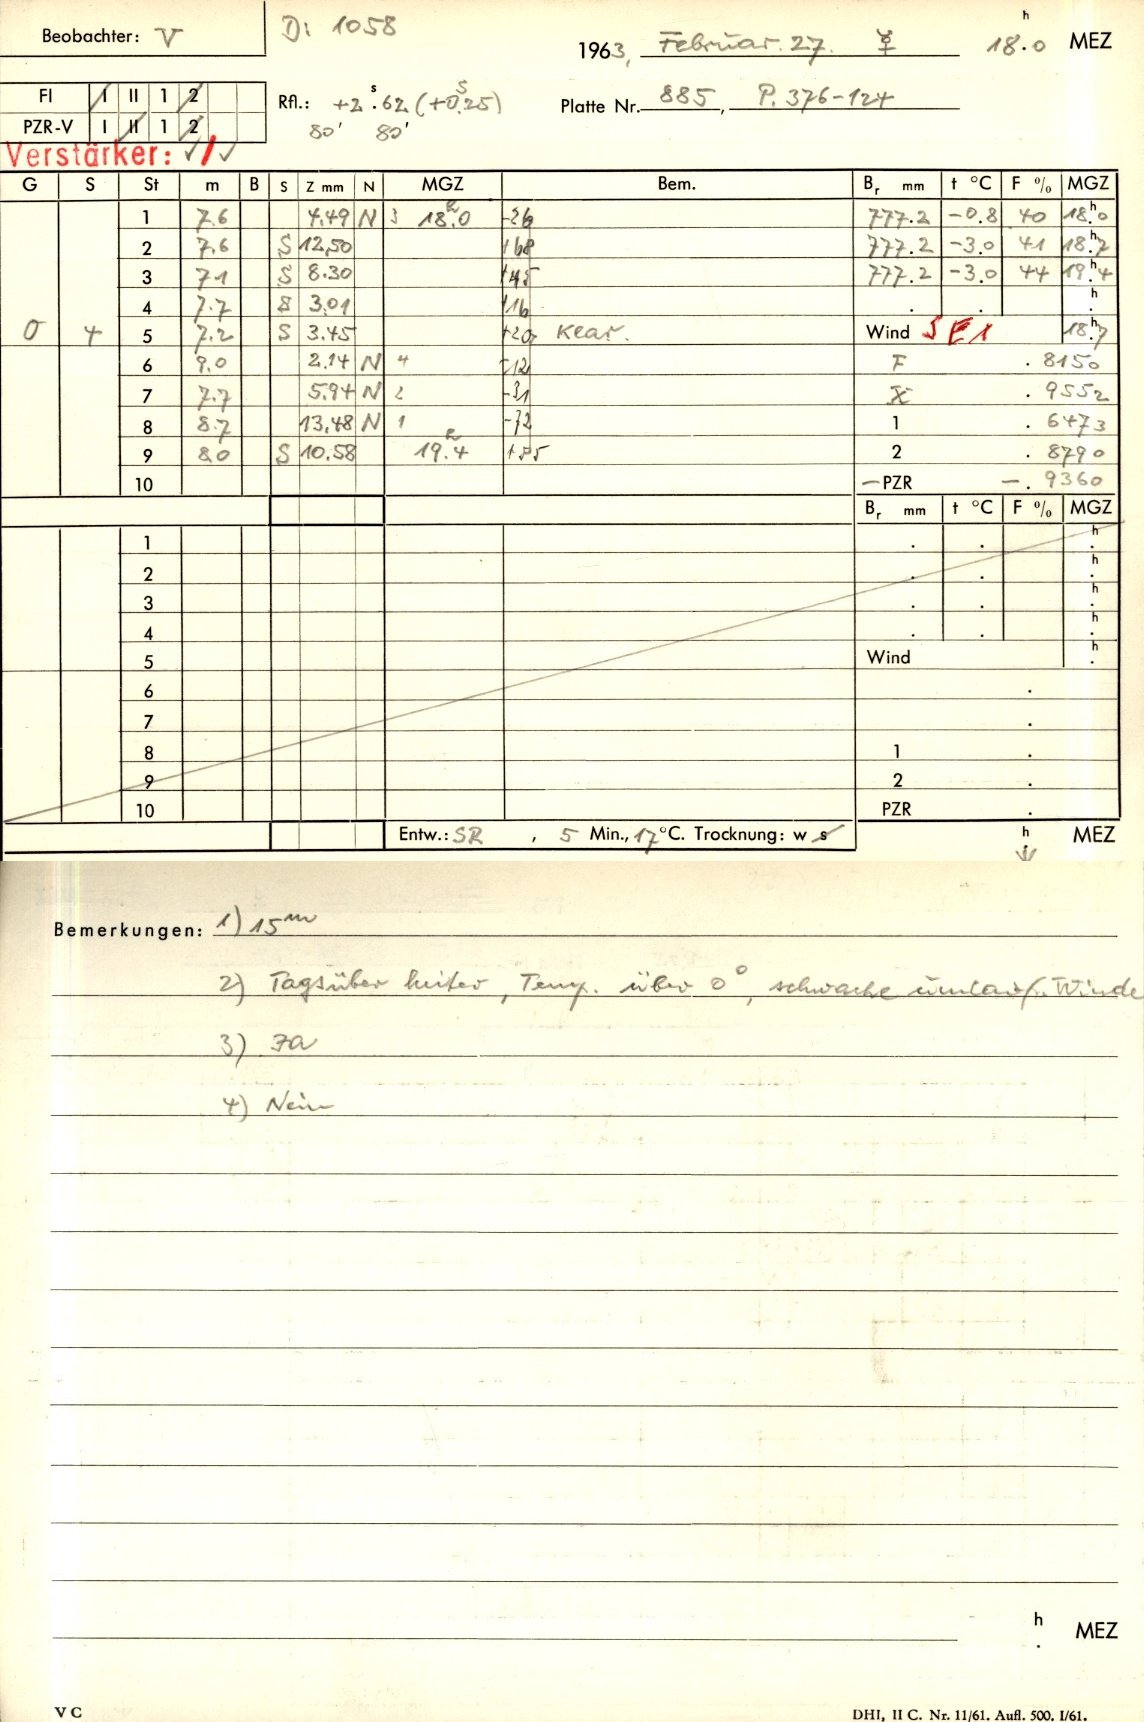 Beobachter: V
Di 1058
1963, Februar. 27. ☿ 18.ʰ0 MEZ
FI I II 1 2
PZR-V I II 1 2
Rfl.: +2.ˢ62 (+0.ˢ25)
80' 80'
Platte Nr. 885, P. 376-124
Verstärker: ✓/✓
G S St m B S Z mm N MGZ Bem. Bᵣ mm t °C F % MGZ
1 7.6 4.49 N 3 18.ʰ0 -26 777.2 -0.8 40 18.ʰ0
2 7.6 S 12,50 +68 777.2 -3.0 41 18.ʰ7
3 7.1 S 8.30 +45 777.2 -3.0 44 19.ʰ4
4 7.7 S 3.01 +16 . . ʰ
0 4 5 7.2 S 3.45 +20, Klar. Wind SE1 18.ʰ7
6 9.0 2.14 N 4 -12 F . 8150
7 7.7 5.94 N 2 -31 . 9552
8 8.7 13,48 N 1 -72 1 . 6473
9 8.0 S 10.58 19.ʰ4 2 . 8790
10 -PZR -. 9360
Bᵣ mm t °C F % MGZ
1 . . ʰ.
2 . . ʰ.
3 . . ʰ.
4 . . ʰ.
5 Wind ʰ.
6 .
7 .
8 1 .
9 2 .
10 PZR .
Entw.: SR , 5 Min., 17°C. Trocknung: w s ʰ. MEZ
Bemerkungen: 1) 15ᵐ
2) Tagsüber heiter, Temp. über 0°, schwache umlauf. Winde
3) Ja
4) Nein
ʰ. MEZ
V C
DHI, II C. Nr. 11/61. Aufl. 500. I/61.